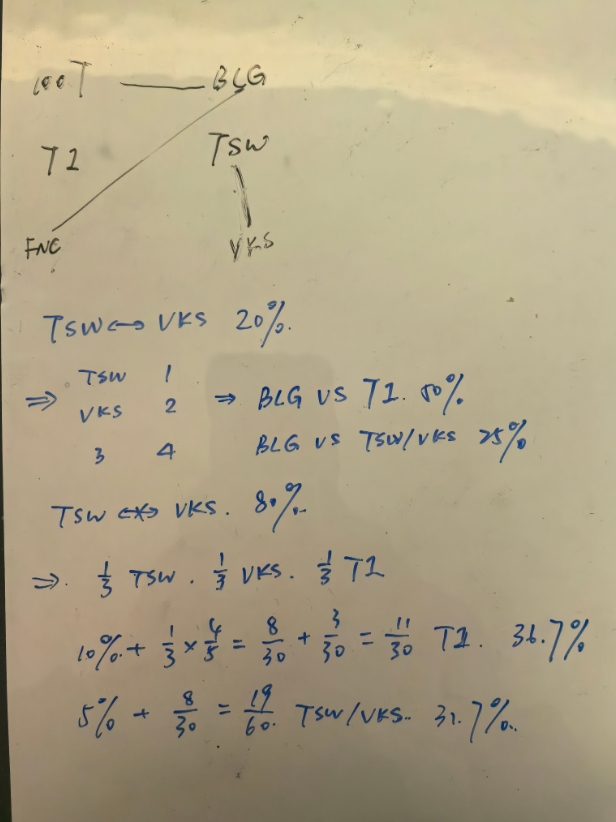 100T — BLG
T1 TSW
FNC VKS
TSW ↔ VKS 20%.
⇒ TSW 1
VKS 2 ⇒ BLG VS T1. 50%
3 4 BLG VS TSW/VKS 25%
TSW ↮ VKS. 80%.
⇒. 1/3 TSW. 1/3 VKS. 1/3 T1
10% + 1/3 × 4/5 = 8/30 + 3/30 = 11/30 T1. 36.7%
5% + 8/30 = 19/60. TSW/VKS.. 31.7%.